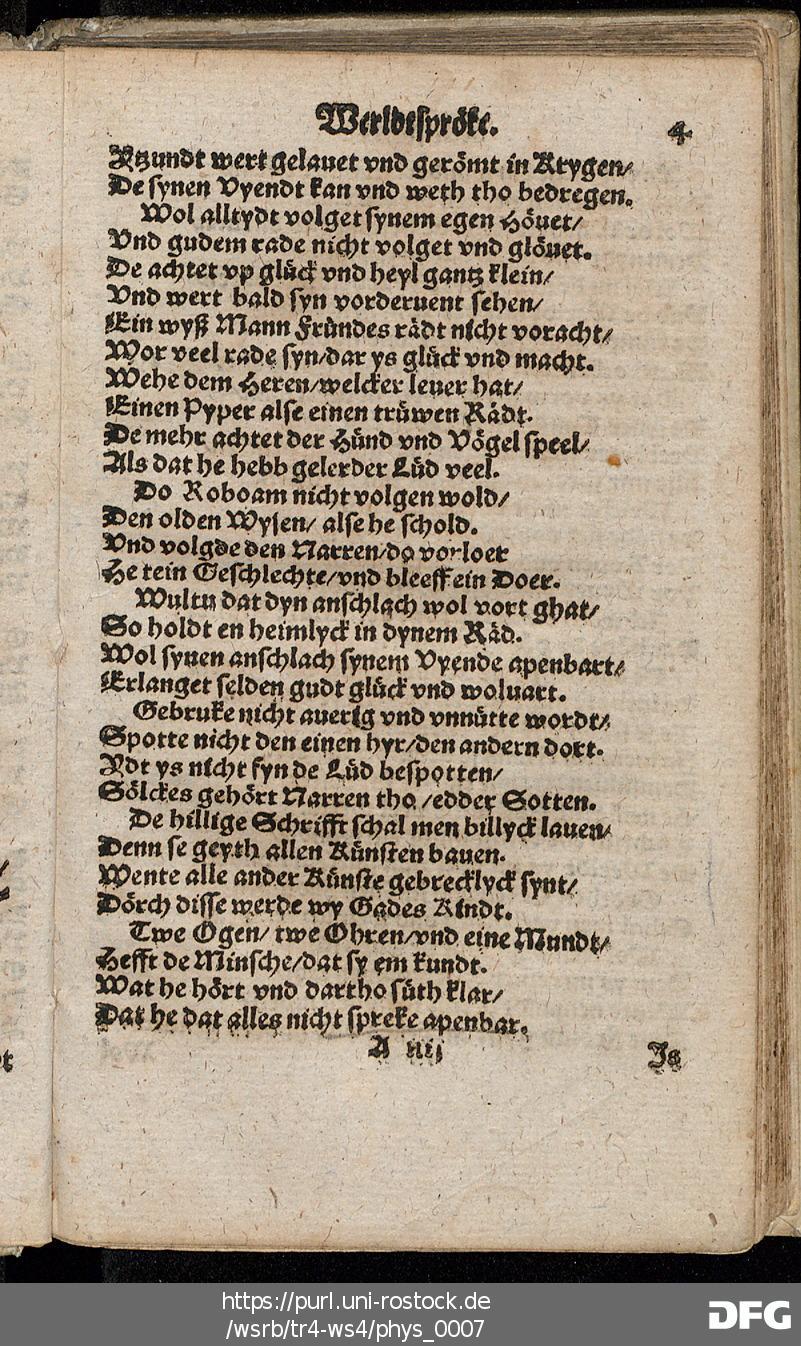 Werldtspröke. 4.
Ytzundt wert gelauet vnd gerömt in Krygen/
De synen Vyendt kan vnd weth tho bedregen.
Wol alltydt volget synem egen Höuet/
Vnd gudem rade nicht volget vnd glöuet.
De achtet vp glück vnd heyl gantz klein/
Vnd wert bald syn vorderuent sehen/
Ein wyß Mann Fründes rädt nicht voracht/
Wor veel rade syn/dar ys glück vnd macht.
Wehe dem Heren/welcker leuer hat/
Einen Pyper alse einen trüwen Rädt.
De mehr achtet der Hünd vnd Vögel speel/
Als dat he hebb gelerder Lüd veel.
Do Roboam nicht volgen wold/
Den olden Wysen/ alse he schold.
Vnd volgde den Narren/do vorloer
He sein Geschlechte/vnd bleeff ein Doer.
Wultu dat dyn anschlach wol vort ghat/
So holdt en heimlyck in dynem Räd.
Wol synen anschlach synem Vyende apenbart/
Erlanget selden gudt glück vnd woluart.
Gebruke nicht auerig vnd vnnütte wordt/
Spotte nicht den einen hyr/den andern dort.
Ydt ys nicht fyn de Lüd bespotten/
Sölckes gehört Narren tho/edder Sotten.
De hillige Schrifft schal men billyck lauen/
Denn se geyth allen Künsten bauen.
Wente alle ander Künste gebrecklyck synt/
Dörch disse werde wy Gades Kindt.
Twe Ogen/ twe Ohren/vnd eine Mundt/
Hefft de Minsche/dat sy em kundt.
Wat he hört vnd dartho süth klar/
Dat he dat alles nicht spreke apenbar.
A iiij Is
https://purl.uni-rostock.de
/wsrb/tr4-ws4/phys_0007
DFG